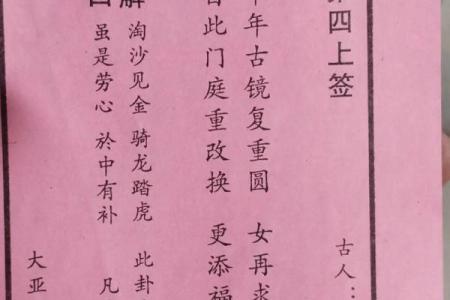 四上签
古人：
年古镜复重圆 女再求
此门庭重改换 更添福
解
曰
淘沙见金 骑龙踏虎 此卦
虽是劳心 於中有补 凡
大亚